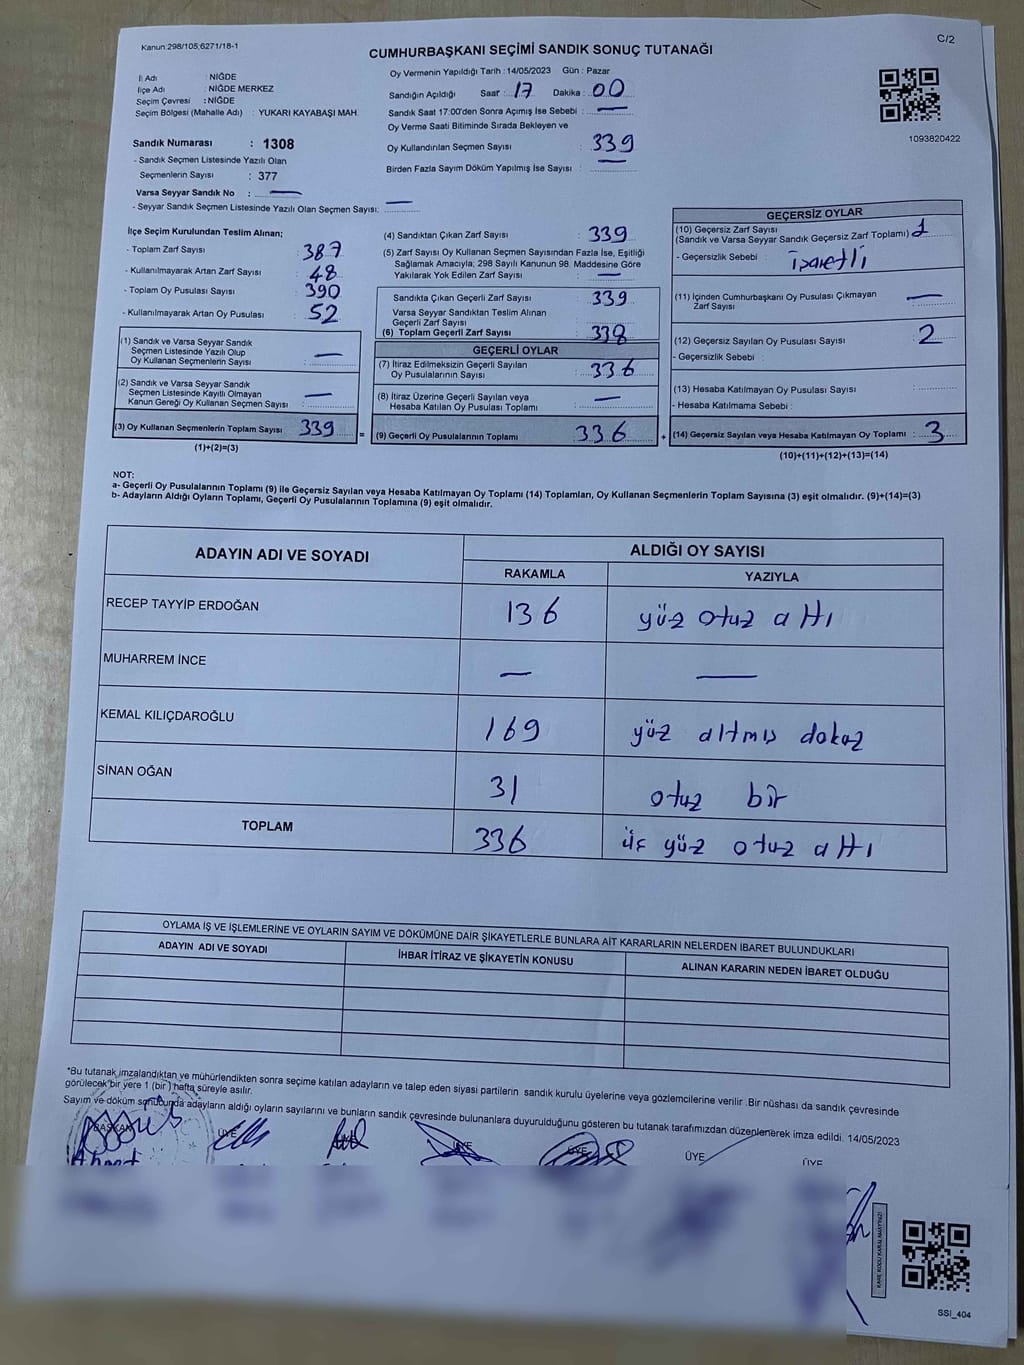 Kanun:298/105,6271/18-1
C/2
CUMHURBAŞKANI SEÇİMİ SANDIK SONUÇ TUTANAĞI
İl Adı : NİĞDE
İlçe Adı : NİĞDE MERKEZ
Seçim Çevresi : NİĞDE
Seçim Bölgesi (Mahalle Adı) : YUKARI KAYABAŞI MAH.
Sandık Numarası : 1308
- Sandık Seçmen Listesinde Yazılı Olan
Seçmenlerin Sayısı : 377
Varsa Seyyar Sandık No : —
- Seyyar Sandık Seçmen Listesinde Yazılı Olan Seçmen Sayısı: —
Oy Vermenin Yapıldığı Tarih : 14/05/2023 Gün : Pazar
Sandığın Açıldığı Saat : 17 Dakika : 00
Sandık Saat 17:00'den Sonra Açımış İse Sebebi : —
Oy Verme Saati Bitiminde Sırada Bekleyen ve
Oy Kullandırılan Seçmen Sayısı : 339
Birden Fazla Sayım Döküm Yapılmış İse Sayısı : —
1093820422
İlçe Seçim Kurulundan Teslim Alınan;
- Toplam Zarf Sayısı : 387
- Kullanılmayarak Artan Zarf Sayısı : 48
- Toplam Oy Pusulası Sayısı : 390
- Kullanılmayarak Artan Oy Pusulası : 52
(1) Sandık ve Varsa Seyyar Sandık
Seçmen Listesinde Yazılı Olup
Oy Kullanan Seçmenlerin Sayısı : —
(2) Sandık ve Varsa Seyyar Sandık
Seçmen Listesinde Kayıtlı Olmayan
Kanun Gereği Oy Kullanan Seçmen Sayısı : —
(3) Oy Kullanan Seçmenlerin Toplam Sayısı : 339 =
(1)+(2)=(3)
(4) Sandıktan Çıkan Zarf Sayısı : 339
(5) Zarf Sayısı Oy Kullanan Seçmen Sayısından Fazla İse, Eşitliği
Sağlamak Amacıyla; 298 Sayılı Kanunun 98. Maddesine Göre
Yakılarak Yok Edilen Zarf Sayısı : —
Sandıkta Çıkan Geçerli Zarf Sayısı : 339
Varsa Seyyar Sandıktan Teslim Alınan
Geçerli Zarf Sayısı :
(6) Toplam Geçerli Zarf Sayısı : 338
GEÇERLİ OYLAR
(7) İtiraz Edilmeksizin Geçerli Sayılan
Oy Pusulalarının Sayısı : 336
(8) İtiraz Üzerine Geçerli Sayılan veya
Hesaba Katılan Oy Pusulası Toplamı : —
(9) Geçerli Oy Pusulalarının Toplamı : 336 +
GEÇERSİZ OYLAR
(10) Geçersiz Zarf Sayısı
(Sandık ve Varsa Seyyar Sandık Geçersiz Zarf Toplamı) : 1
- Geçersizlik Sebebi : işaretli
(11) İçinden Cumhurbaşkanı Oy Pusulası Çıkmayan
Zarf Sayısı : —
(12) Geçersiz Sayılan Oy Pusulası Sayısı : 2
- Geçersizlik Sebebi :
(13) Hesaba Katılmayan Oy Pusulası Sayısı :
- Hesaba Katılmama Sebebi :
(14) Geçersiz Sayılan veya Hesaba Katılmayan Oy Toplamı : 3
(10)+(11)+(12)+(13)=(14)
NOT:
a- Geçerli Oy Pusulalarının Toplamı (9) ile Geçersiz Sayılan veya Hesaba Katılmayan Oy Toplamı (14) Toplamları, Oy Kullanan Seçmenlerin Toplam Sayısına (3) eşit olmalıdır. (9)+(14)=(3)
b- Adayların Aldığı Oyların Toplamı, Geçerli Oy Pusulalarının Toplamına (9) eşit olmalıdır.
ADAYIN ADI VE SOYADI ALDIĞI OY SAYISI
RAKAMLA YAZIYLA
RECEP TAYYİP ERDOĞAN 136 yüz otuz altı
MUHARREM İNCE — —
KEMAL KILIÇDAROĞLU 169 yüz altmış dokuz
SİNAN OĞAN 31 otuz bir
TOPLAM 336 üç yüz otuz altı
OYLAMA İŞ VE İŞLEMLERİNE VE OYLARIN SAYIM VE DÖKÜMÜNE DAİR ŞİKAYETLERLE BUNLARA AİT KARARLARIN NELERDEN İBARET BULUNDUKLARI
ADAYIN ADI VE SOYADI İHBAR İTİRAZ VE ŞİKAYETİN KONUSU ALINAN KARARIN NEDEN İBARET OLDUĞU
*Bu tutanak imzalandıktan ve mühürlendikten sonra seçime katılan adayların ve talep eden siyasi partilerin sandık kurulu üyelerine veya gözlemcilerine verilir. Bir nüshası da sandık çevresinde
görülecek bir yere 1 (bir) hafta süreyle asılır.
Sayım ve döküm sonucunda adayların aldığı oyların sayılarını ve bunların sandık çevresinde bulunanlara duyurulduğunu gösteren bu tutanak tarafımızdan düzenlenerek imza edildi. 14/05/2023
BAŞKAN ÜYE ÜYE ÜYE ÜYE ÜYE ÜYE
Ahmet
SSI_404